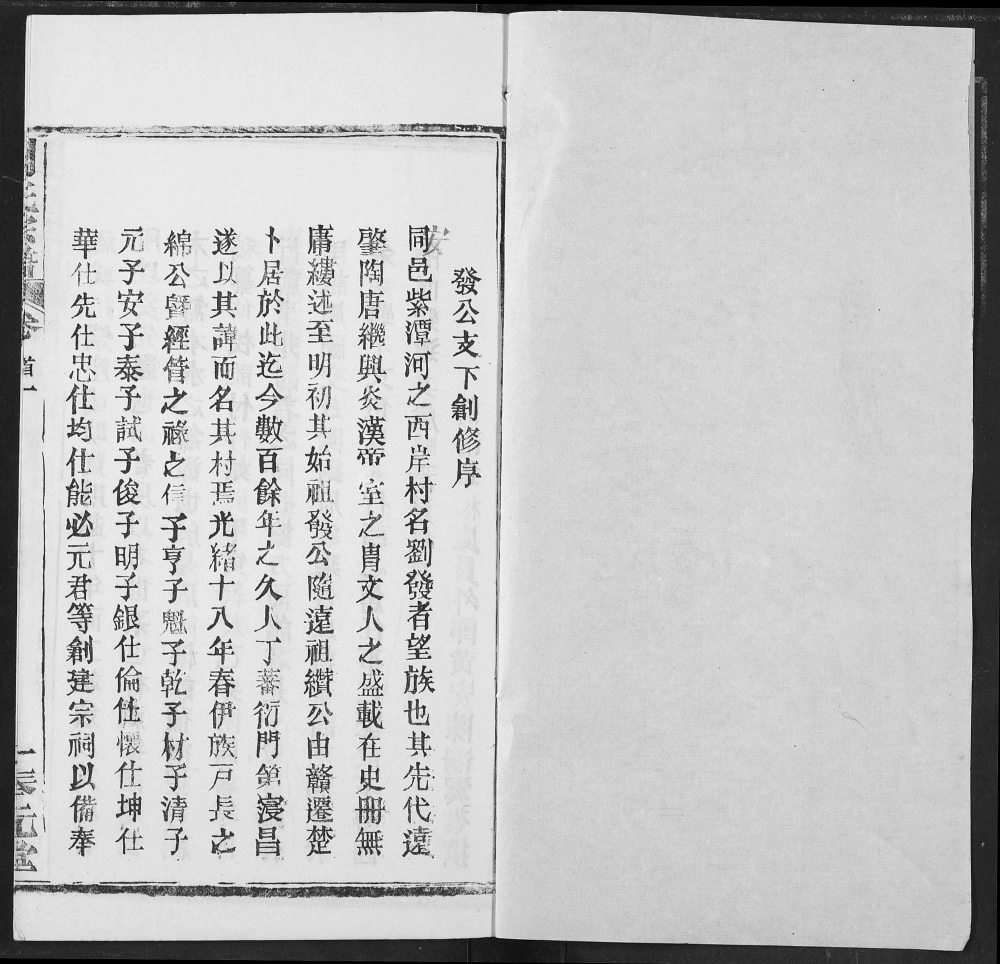 發公支下創修序
同邑紫潭河之西岸村名劉發者望族也其先代遠
肇陶唐繼興炎漢帝室之胄文人之盛載在史冊無
庸縷述至明初其始祖發公隨遠祖纘公由贛遷楚
卜居於此迄今數百餘年之久人丁蕃衍門第寖昌
遂以其諱而名其村焉光緒十八年春伊族戶長之
綿公暨經管之祿之信子亨子魁子乾子材子清子
元子安子泰子試子俊子明子銀仕倫仕懷仕坤仕
華仕先仕忠仕均仕能必元君等創建宗祠以備奉
卷首一